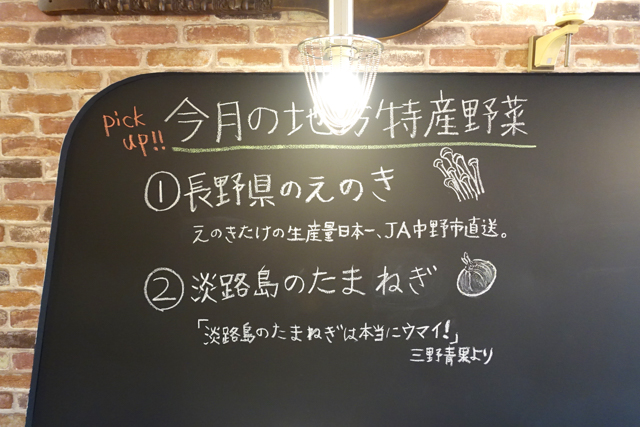 pick up!!
今月の地方特産野菜
①長野県のえのき
えのきたけの生産量日本一、JA中野市直送。
②淡路島のたまねぎ
「淡路島のたまねぎは本当にウマイ!」
三野青果より